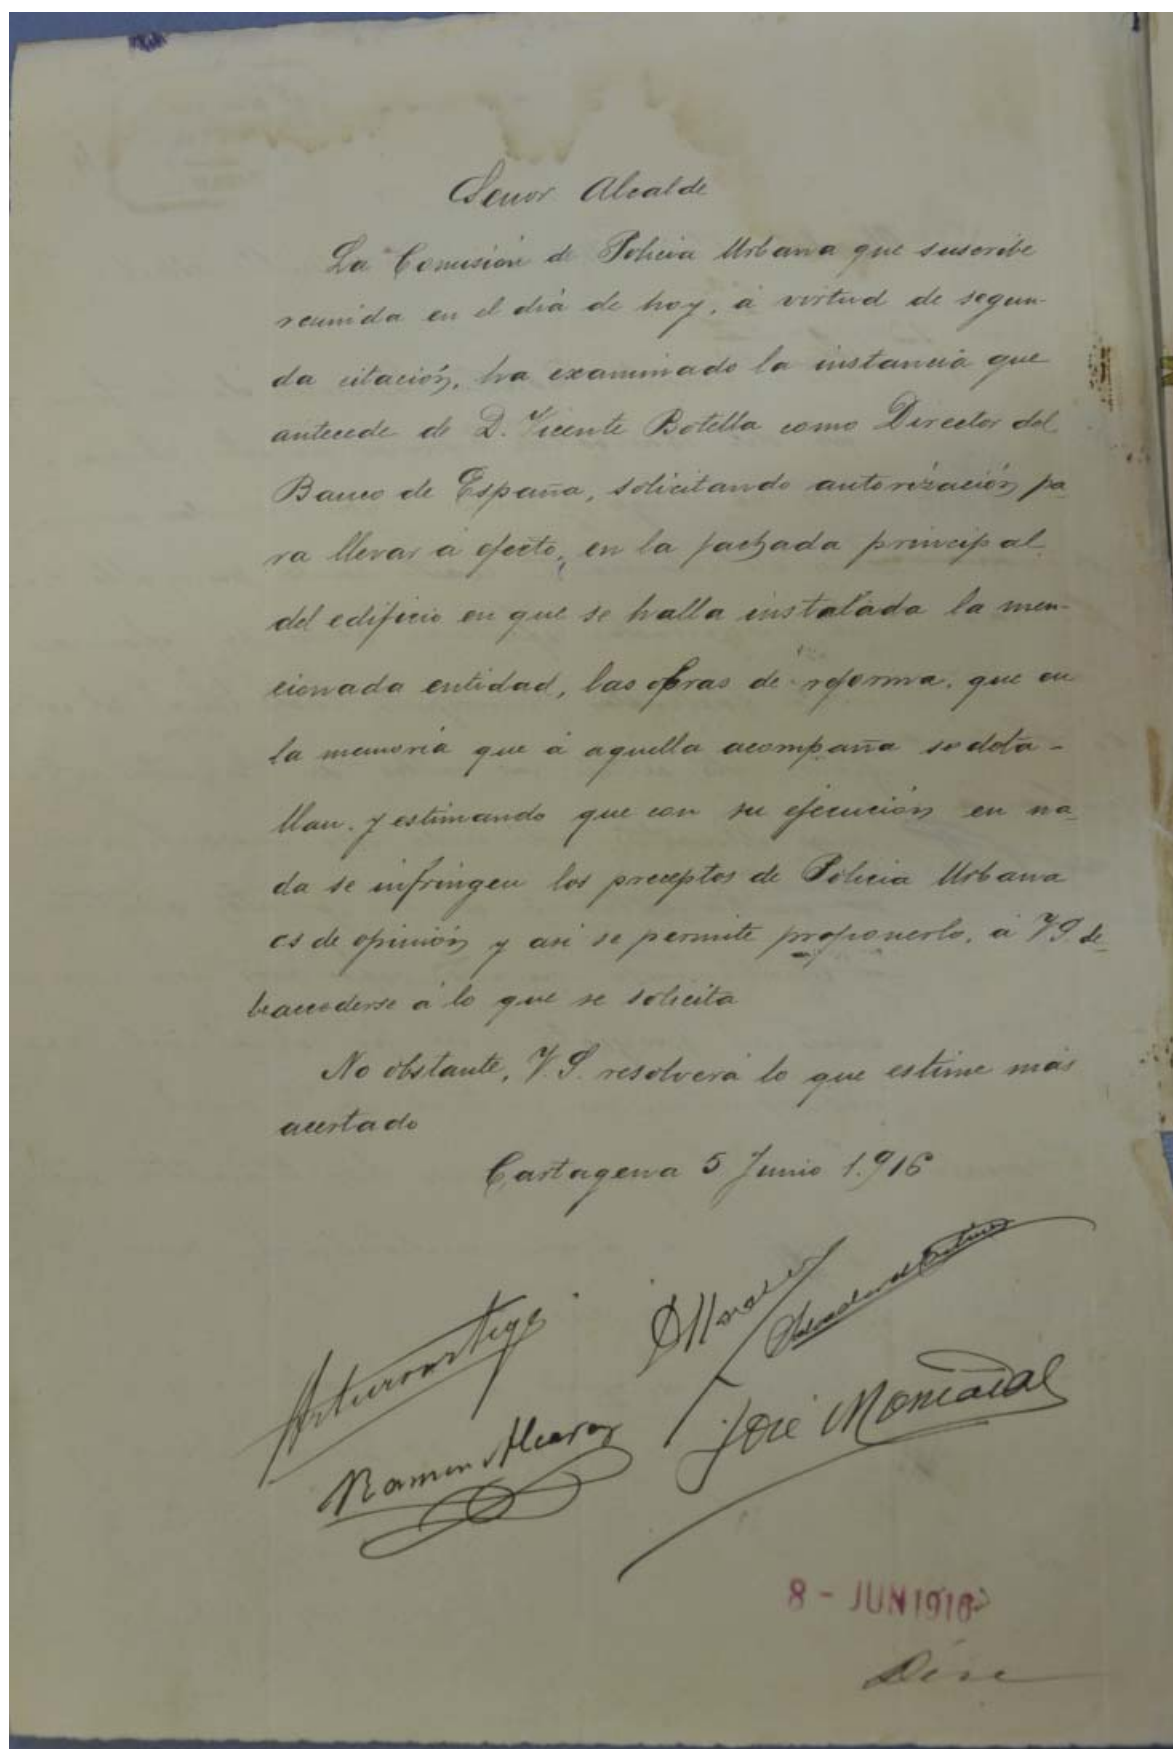 Señor Alcalde
La Comisión de Policia Urbana que suscribe
reunida en el dia de hoy, á virtud de segun-
da citación, ha examinado la instancia que
antecede de D. Vicente Botella como Director del
Banco de España, solicitando autorización pa
ra llevar á efecto, en la fachada principal
del edificio en que se halla instalada la men-
cionada entidad, las obras de reforma, que en
la memoria que á aquella acompaña se deta-
llan. y estimando que con su ejecución en na
da se infringen los preceptos de Policia Urbana
es de opinión y asi se permite proponerlo, á V.S. de
be accederse á lo que se solicita
No obstante, V.S. resolverá lo que estime más
acertado
Cartagena 5 Junio 1.916
Ramon Alcaraz
José Moncada
8 - JUN 1916